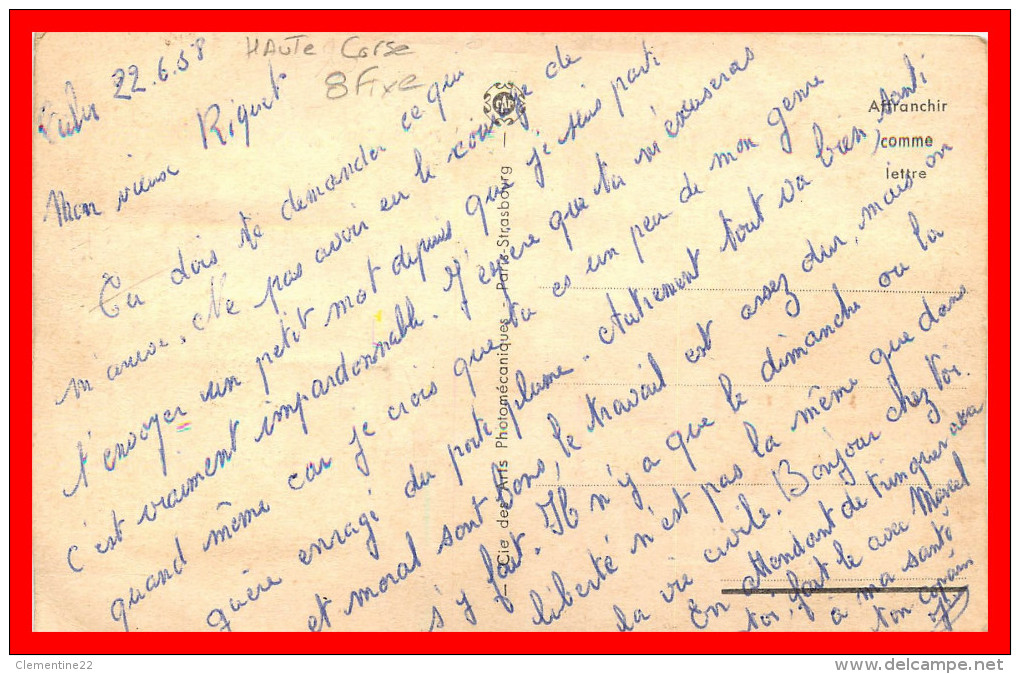 HAUTE Corse
8 Fixe
22.6.58
Mon vieux Riquet
Tu dois te demander ce qui
m'arrive. Ne pas avoir eu le courage de
t'envoyer un petit mot depuis que je suis parti
c'est vraiment impardonnable. J'espère que tu m'excuseras
quand même car je crois que tu es un peu de mon genre
guère enragé du porte plume. Autrement tout va bien, santé
et moral sont bons, le travail est assez dur, mais on
s'y fait. Il n'y a que le dimanche ou la
liberté n'est pas la même que dans
la vie civile. Bonjour chez toi.
En attendant de trinquer avec
toi, fait le avec Marcel
a ma santé
ton copain
Affranchir
comme
lettre
Cie des Arts Photomécaniques - Paris-Strasbourg
CAP
Clementine22
www.delcampe.net